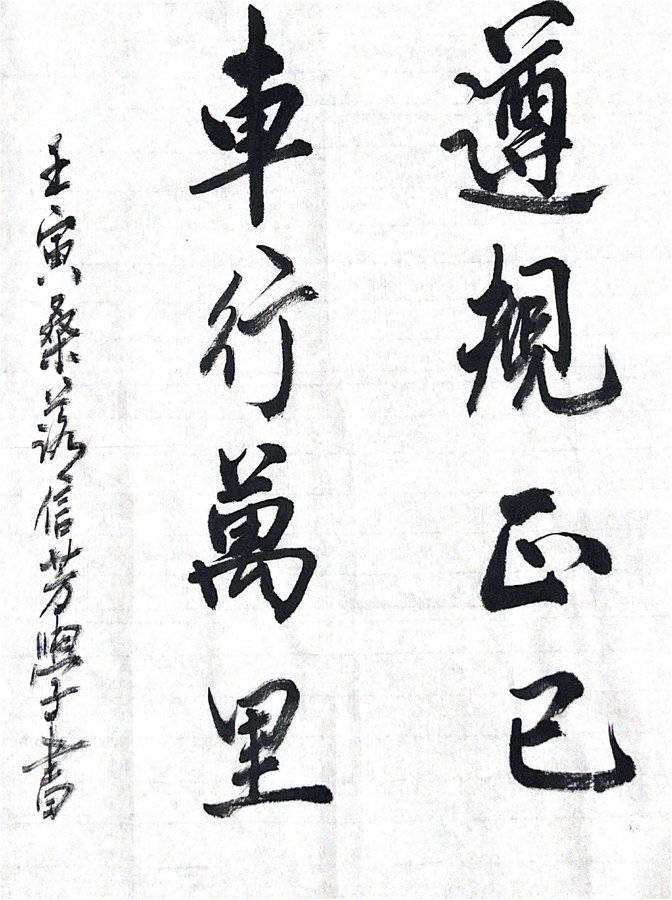 遵規正己
車行萬里
壬寅桑落信芳學子書